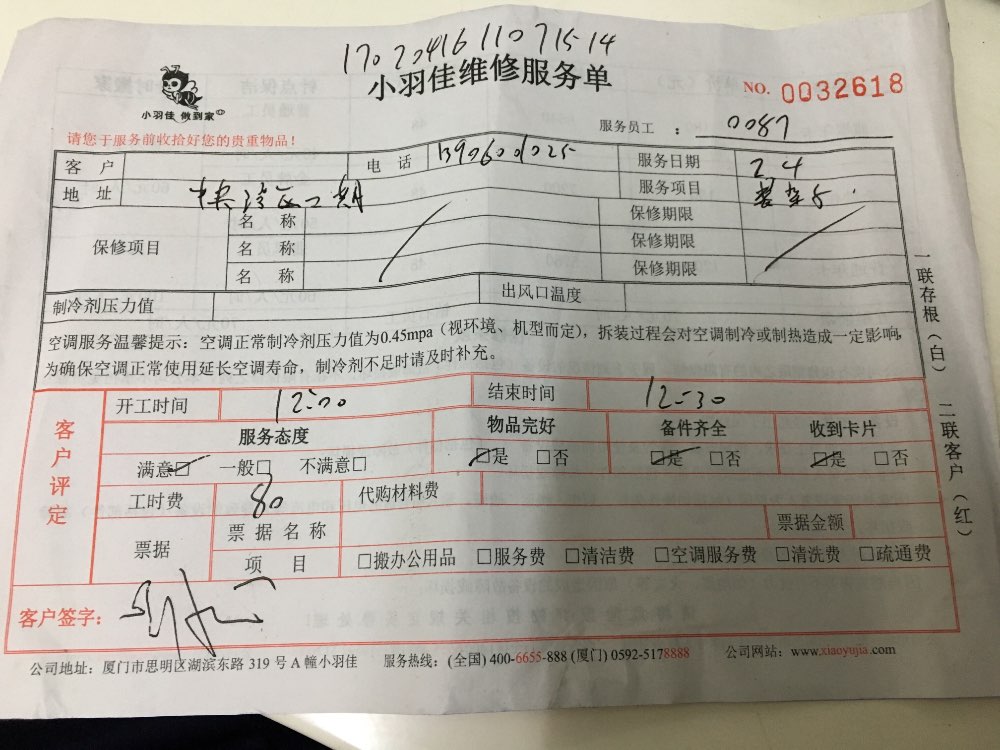 17020416110715-14
小羽佳维修服务单
NO. 0032618
小羽佳 做到家
请您于服务前收拾好您的贵重物品！
服务员工 ： 0087
客 户 电 话 服务日期 2.4
地 址 服务项目
保修项目 名 称 保修期限
名 称 保修期限
名 称 保修期限
制冷剂压力值 出风口温度
空调服务温馨提示：空调正常制冷剂压力值为0.45mpa（视环境、机型而定），拆装过程会对空调制冷或制热造成一定影响，
为确保空调正常使用延长空调寿命，制冷剂不足时请及时补充。
一联存根（白） 二联客户（红）
客户评定
开工时间 12:00 结束时间 12:30
服务态度 物品完好 备件齐全 收到卡片
满意□ 一般□ 不满意□ □是 □否 □是 □否 □是 □否
工时费 80 代购材料费
票据 票据名称 票据金额
项 目 □搬办公用品 □服务费 □清洁费 □空调服务费 □清洗费 □疏通费
客户签字：
公司地址：厦门市思明区湖滨东路 319 号 A 幢小羽佳 服务热线：(全国) 400-6655-888 (厦门) 0592-5178888 公司网站：www.xiaoyujia.com